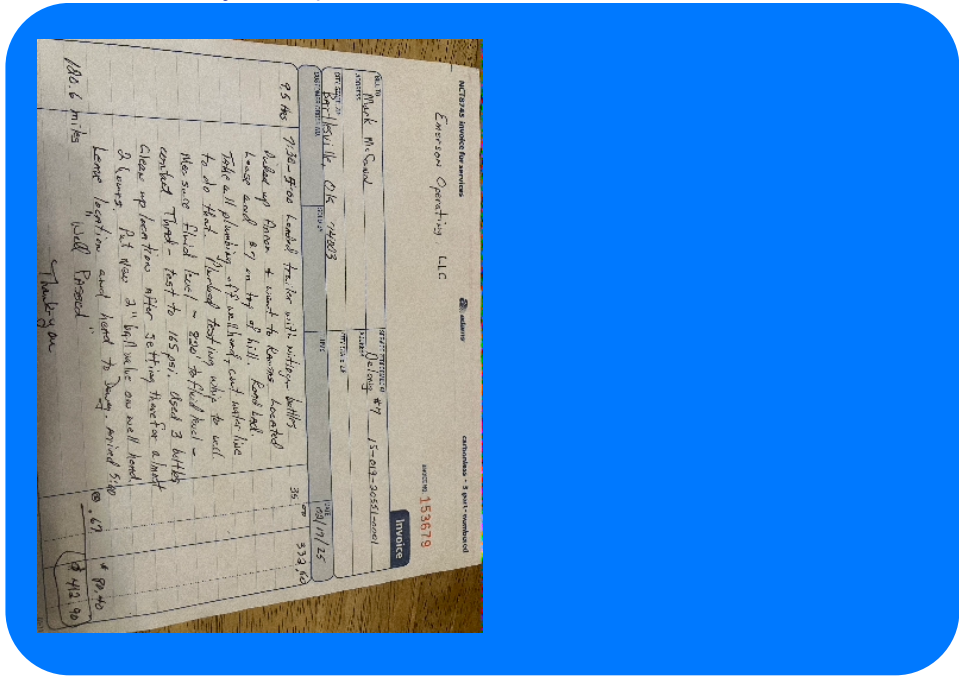 NCT8745 invoice for services
adams
carbonless • 3 part • numbered
Emerson Operating LLC
INVOICE NO. 153679
Invoice
BILL TO
Mark McCann
ADDRESS
Delong #7 15-019-20551-0001
ADDRESS
CITY, STATE, ZIP
Bartlesville, OK 74003
CITY, STATE, ZIP
CUSTOMER ORDER NO.
SOLD BY
TERMS
DATE
02/17/25
9.5 hrs 7:30-5:00 Loaded trailer with nitrogen bottles 35.00 332.50
Picked up Aaron & went to Located
Lease and #7 on top of hill. Road bad.
Take all plumbing off wellhead, cut water line
to do that. Plumbed testing whip to well.
Measure fluid level - 820' to fluid level -
contact Thad - test to 165 psi. Used 3 bottles
Clean up location after setting there for almost
2 hours. Put New 2" ball valve on well head.
Leave location and head to Dewey. Arrived 5:00
120.6 miles @ .67 $ 80.40
"Well Passed"
Thank you $ 412.90